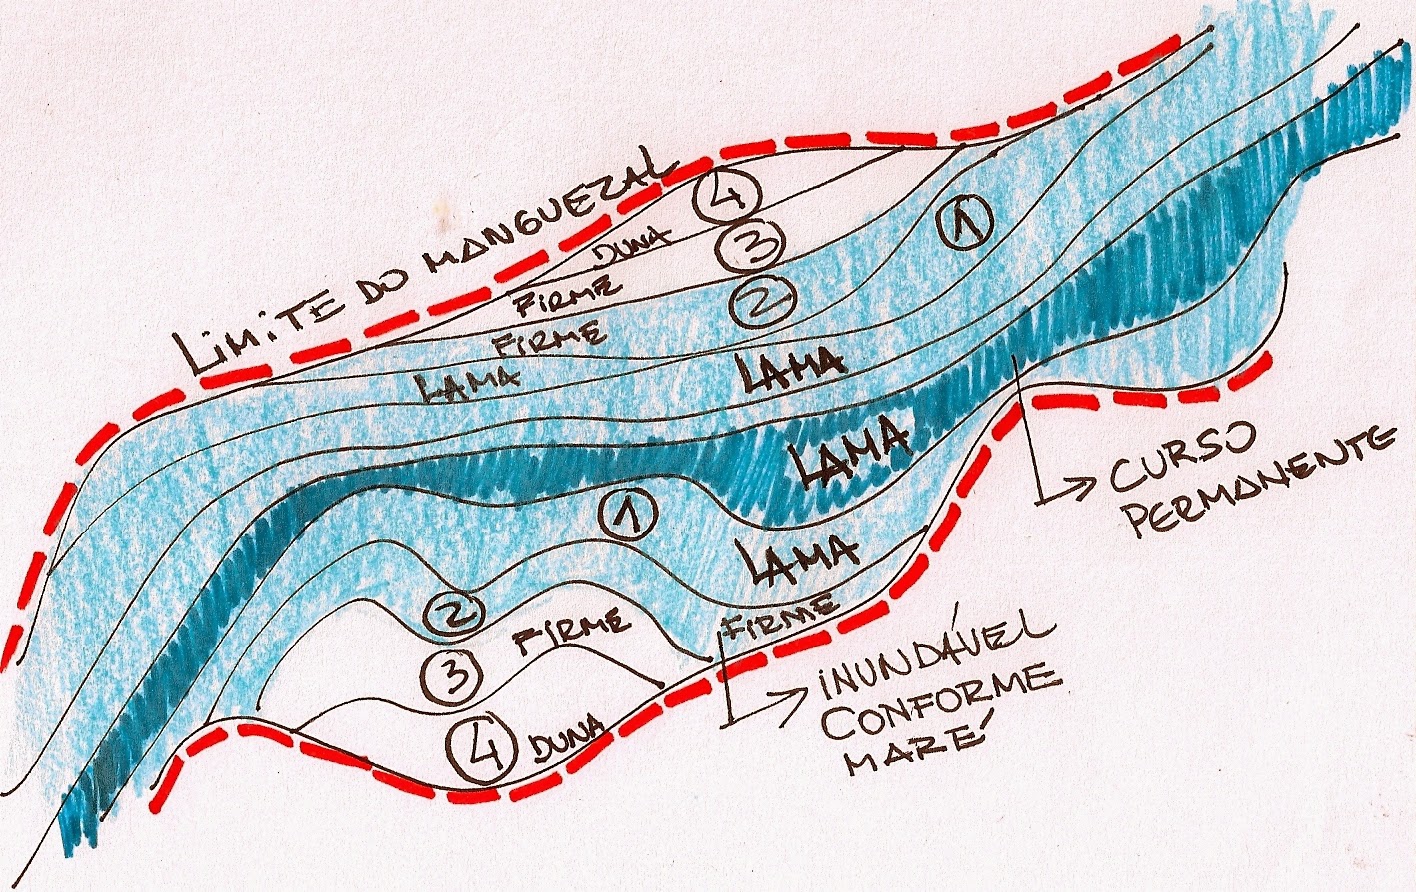 LIMITE DO MANGUEZAL
4
DUNA
3
FIRME
2
FIRME
1
LAMA
LAMA
LAMA
1
LAMA
2
FIRME
FIRME
3
4
DUNA
CURSO
PERMANENTE
INUNDÁVEL
CONFORME
MARÉ